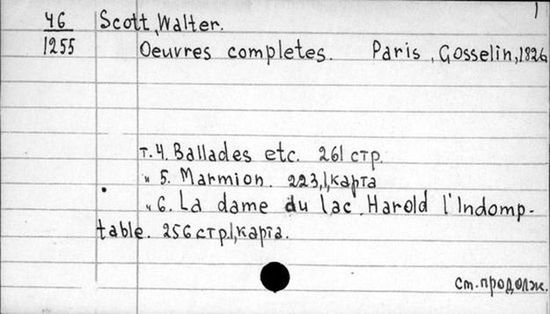 46 Scott, Walter. 1
1255 Oeuvres completes. Paris, Gosselin, 1826
т. 4. Ballades etc. 261 стр.
" 5. Marmion. 223,1, карта
" 6. La dame du lac. Harold l'Indomp-
table. 256 стр. 1, карта.
см. продолж.